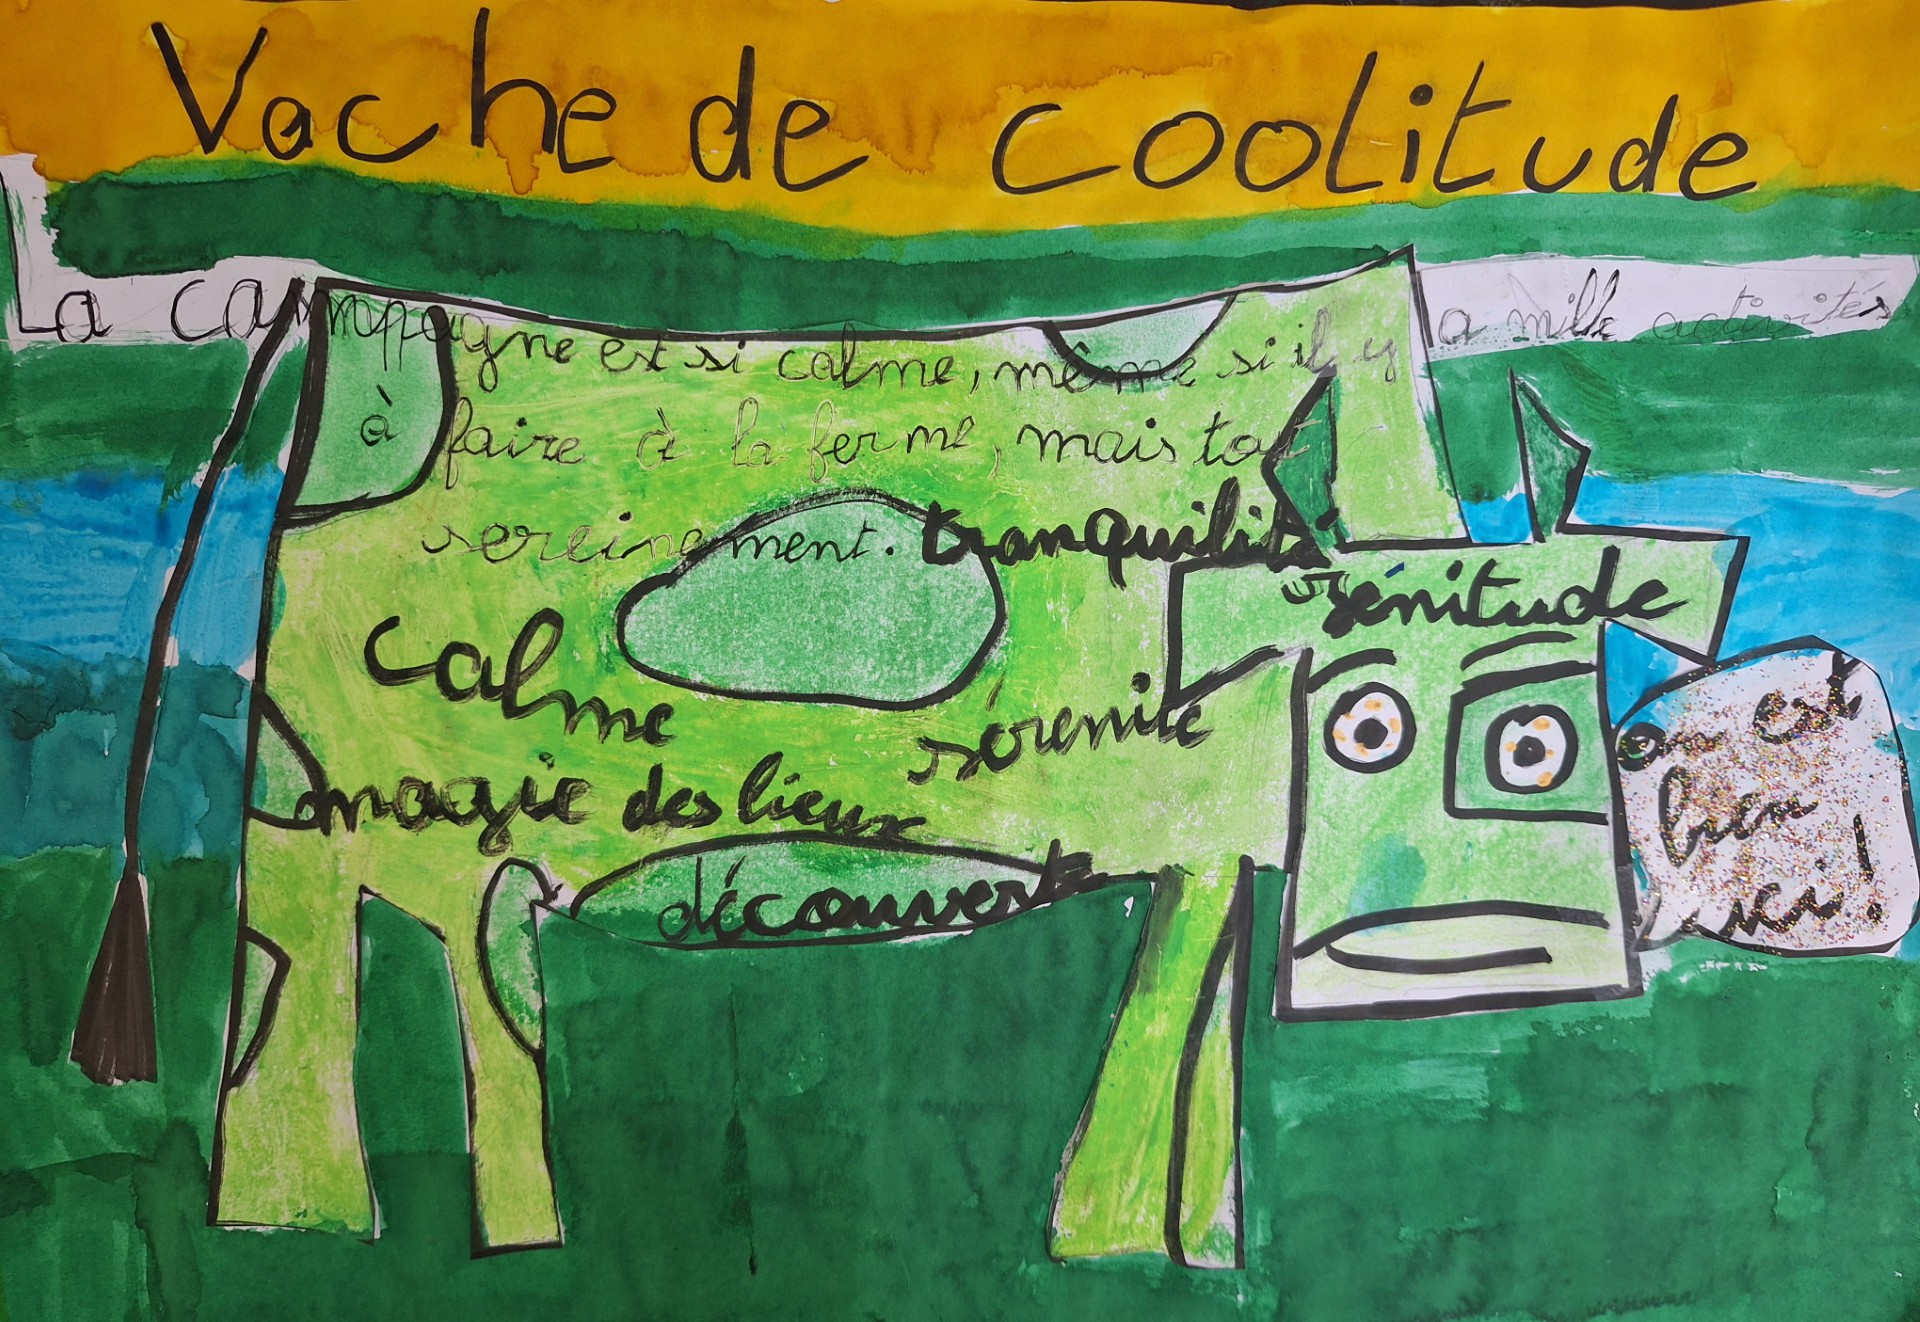 Vache de coolitude
La campagne est si calme, même si il y a mille activités
à faire à la ferme, mais tout
sereinement. tranquilité
sénitude
calme
sérenité
magie des lieux
découverte
on est
bien
ici!